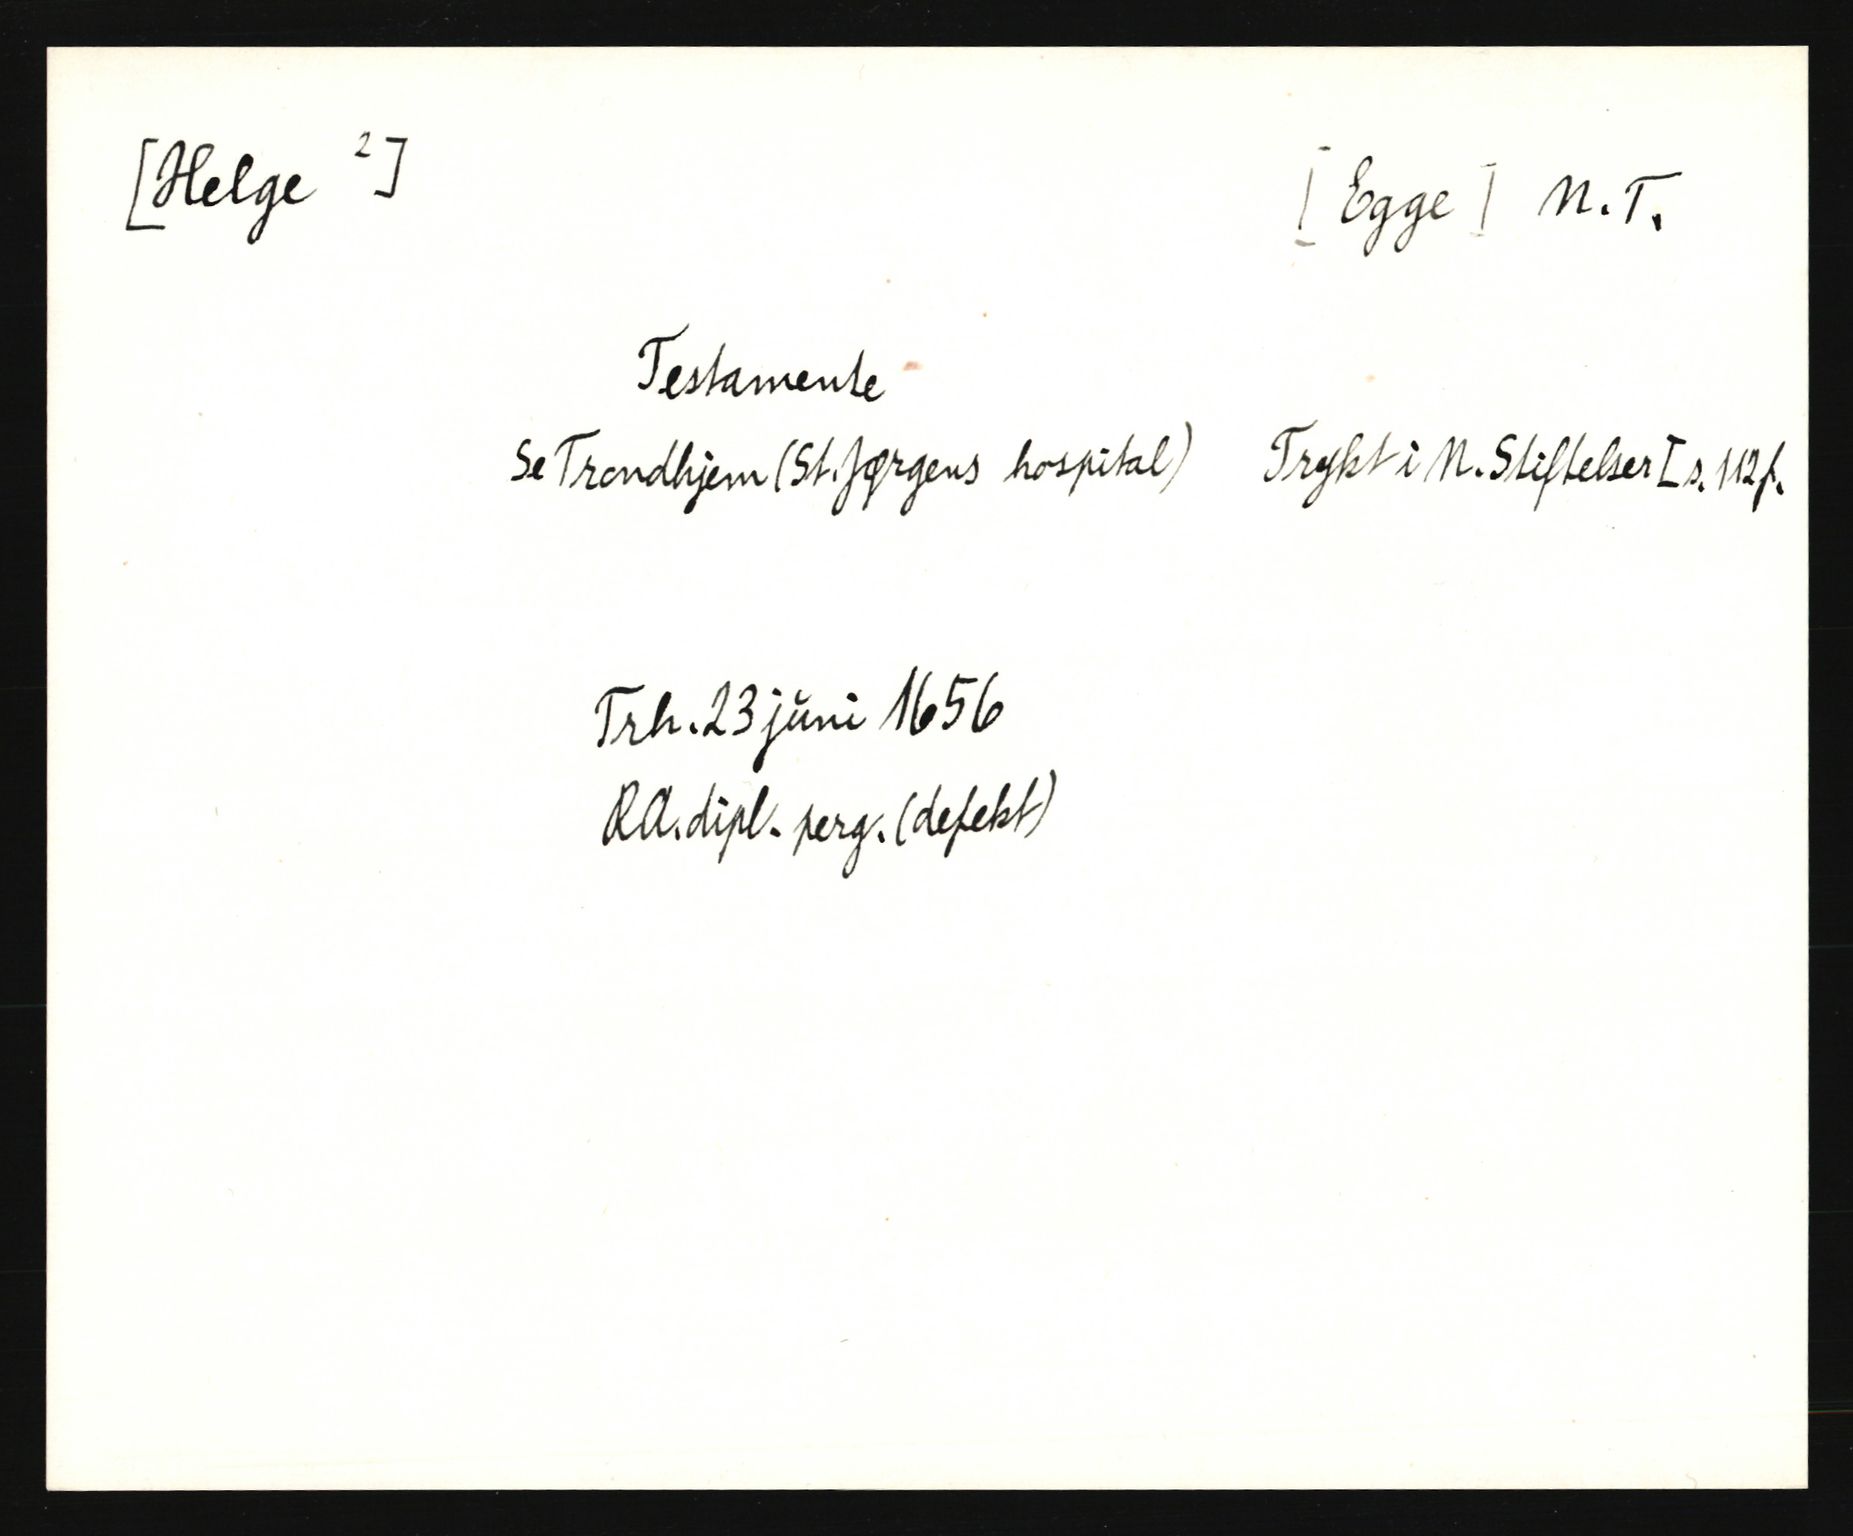 [Helge ²] [Egge] N.T.
Testamente
Se Trondhjem (St. Jørgens hospital) Trykt i N. Stiftelser I s. 112 f.
Trh. 23 juni 1656
RA. dipl. perg. (defekt)